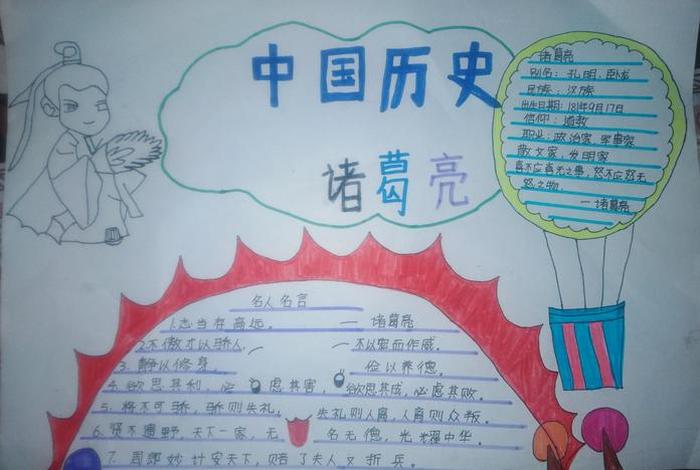 中国历史
诸葛亮
诸葛亮
别名：孔明、卧龙
民族：汉族
出生日期：181年9月17日
信仰：道教
职业：政治家、军事家
散文家，发明家
喜不应喜无之事，怒不应怒无
怒之物。
一诸葛亮
名人名言
1.志当存高远。 — 诸葛亮
2.不傲才以骄人， 不以宠而作威。
3.静以修身， 俭以养德。
4.欲思其利，必虑其害，欲思其成，必虑其败。
5.将不可骄，骄则失礼。失礼则人离，人离则众叛。
6.贤不遗野，天下一家，无名无德，光耀中华。
7.周郎妙计安天下，赔了夫人又折兵。